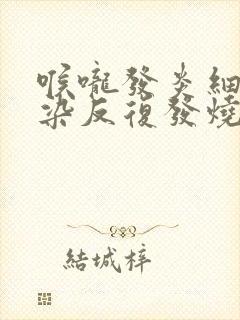 喉嚨發炎細
染反復發燒
結城梓